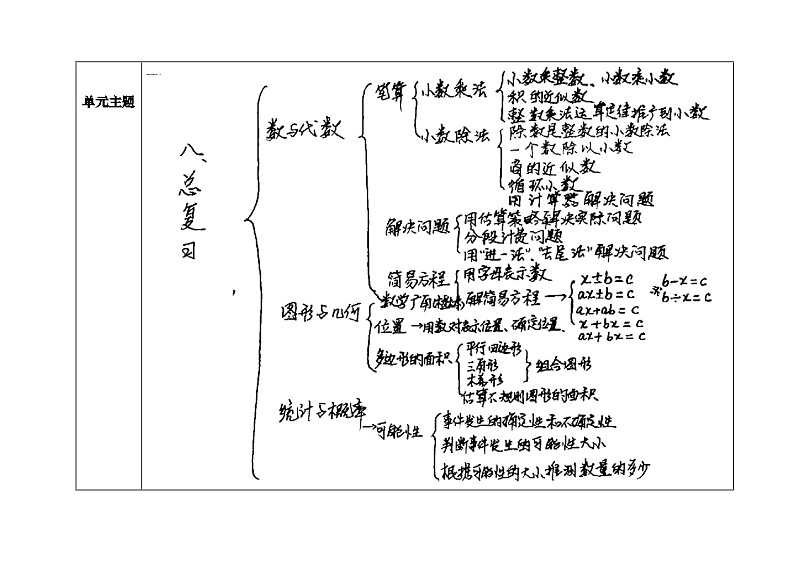 单元主题
八、总复习
数与代数
笔算
小数乘法
小数乘整数、小数乘小数
积的近似数
整数乘法运算定律推广到小数
小数除法
除数是整数的小数除法
一个数除以小数
商的近似数
循环小数
用计算器解决问题
解决问题
用估算策略解决实际问题
分段计费问题
用“进一法”、“去尾法”解决问题
简易方程
用字母表示数
解简易方程→
x±b=c
ax±b=c
ax+ab=c
x+bx=c
ax+bx=c
※
b-x=c
b÷x=c
数学广角植树
图形与几何
位置→用数对表示位置、确定位置
多边形的面积
平行四边形
三角形
梯形
组合图形
估算不规则图形的面积
统计与概率
→可能性
事件发生的确定性和不确定性
判断事件发生的可能性大小
根据可能性的大小推测数量的多少